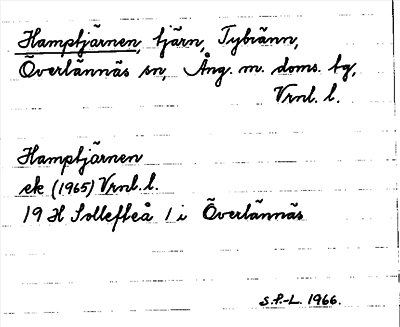 Hamptjärnen, tjärn, Tybränn,
Överlännäs sn, Ång. m. doms. lg,
Vrnl. l.
Hamptjärnen
ek (1965) Vrnl. l.
19 H Sollefteå 1 i Överlännäs
S.P.-L. 1966.